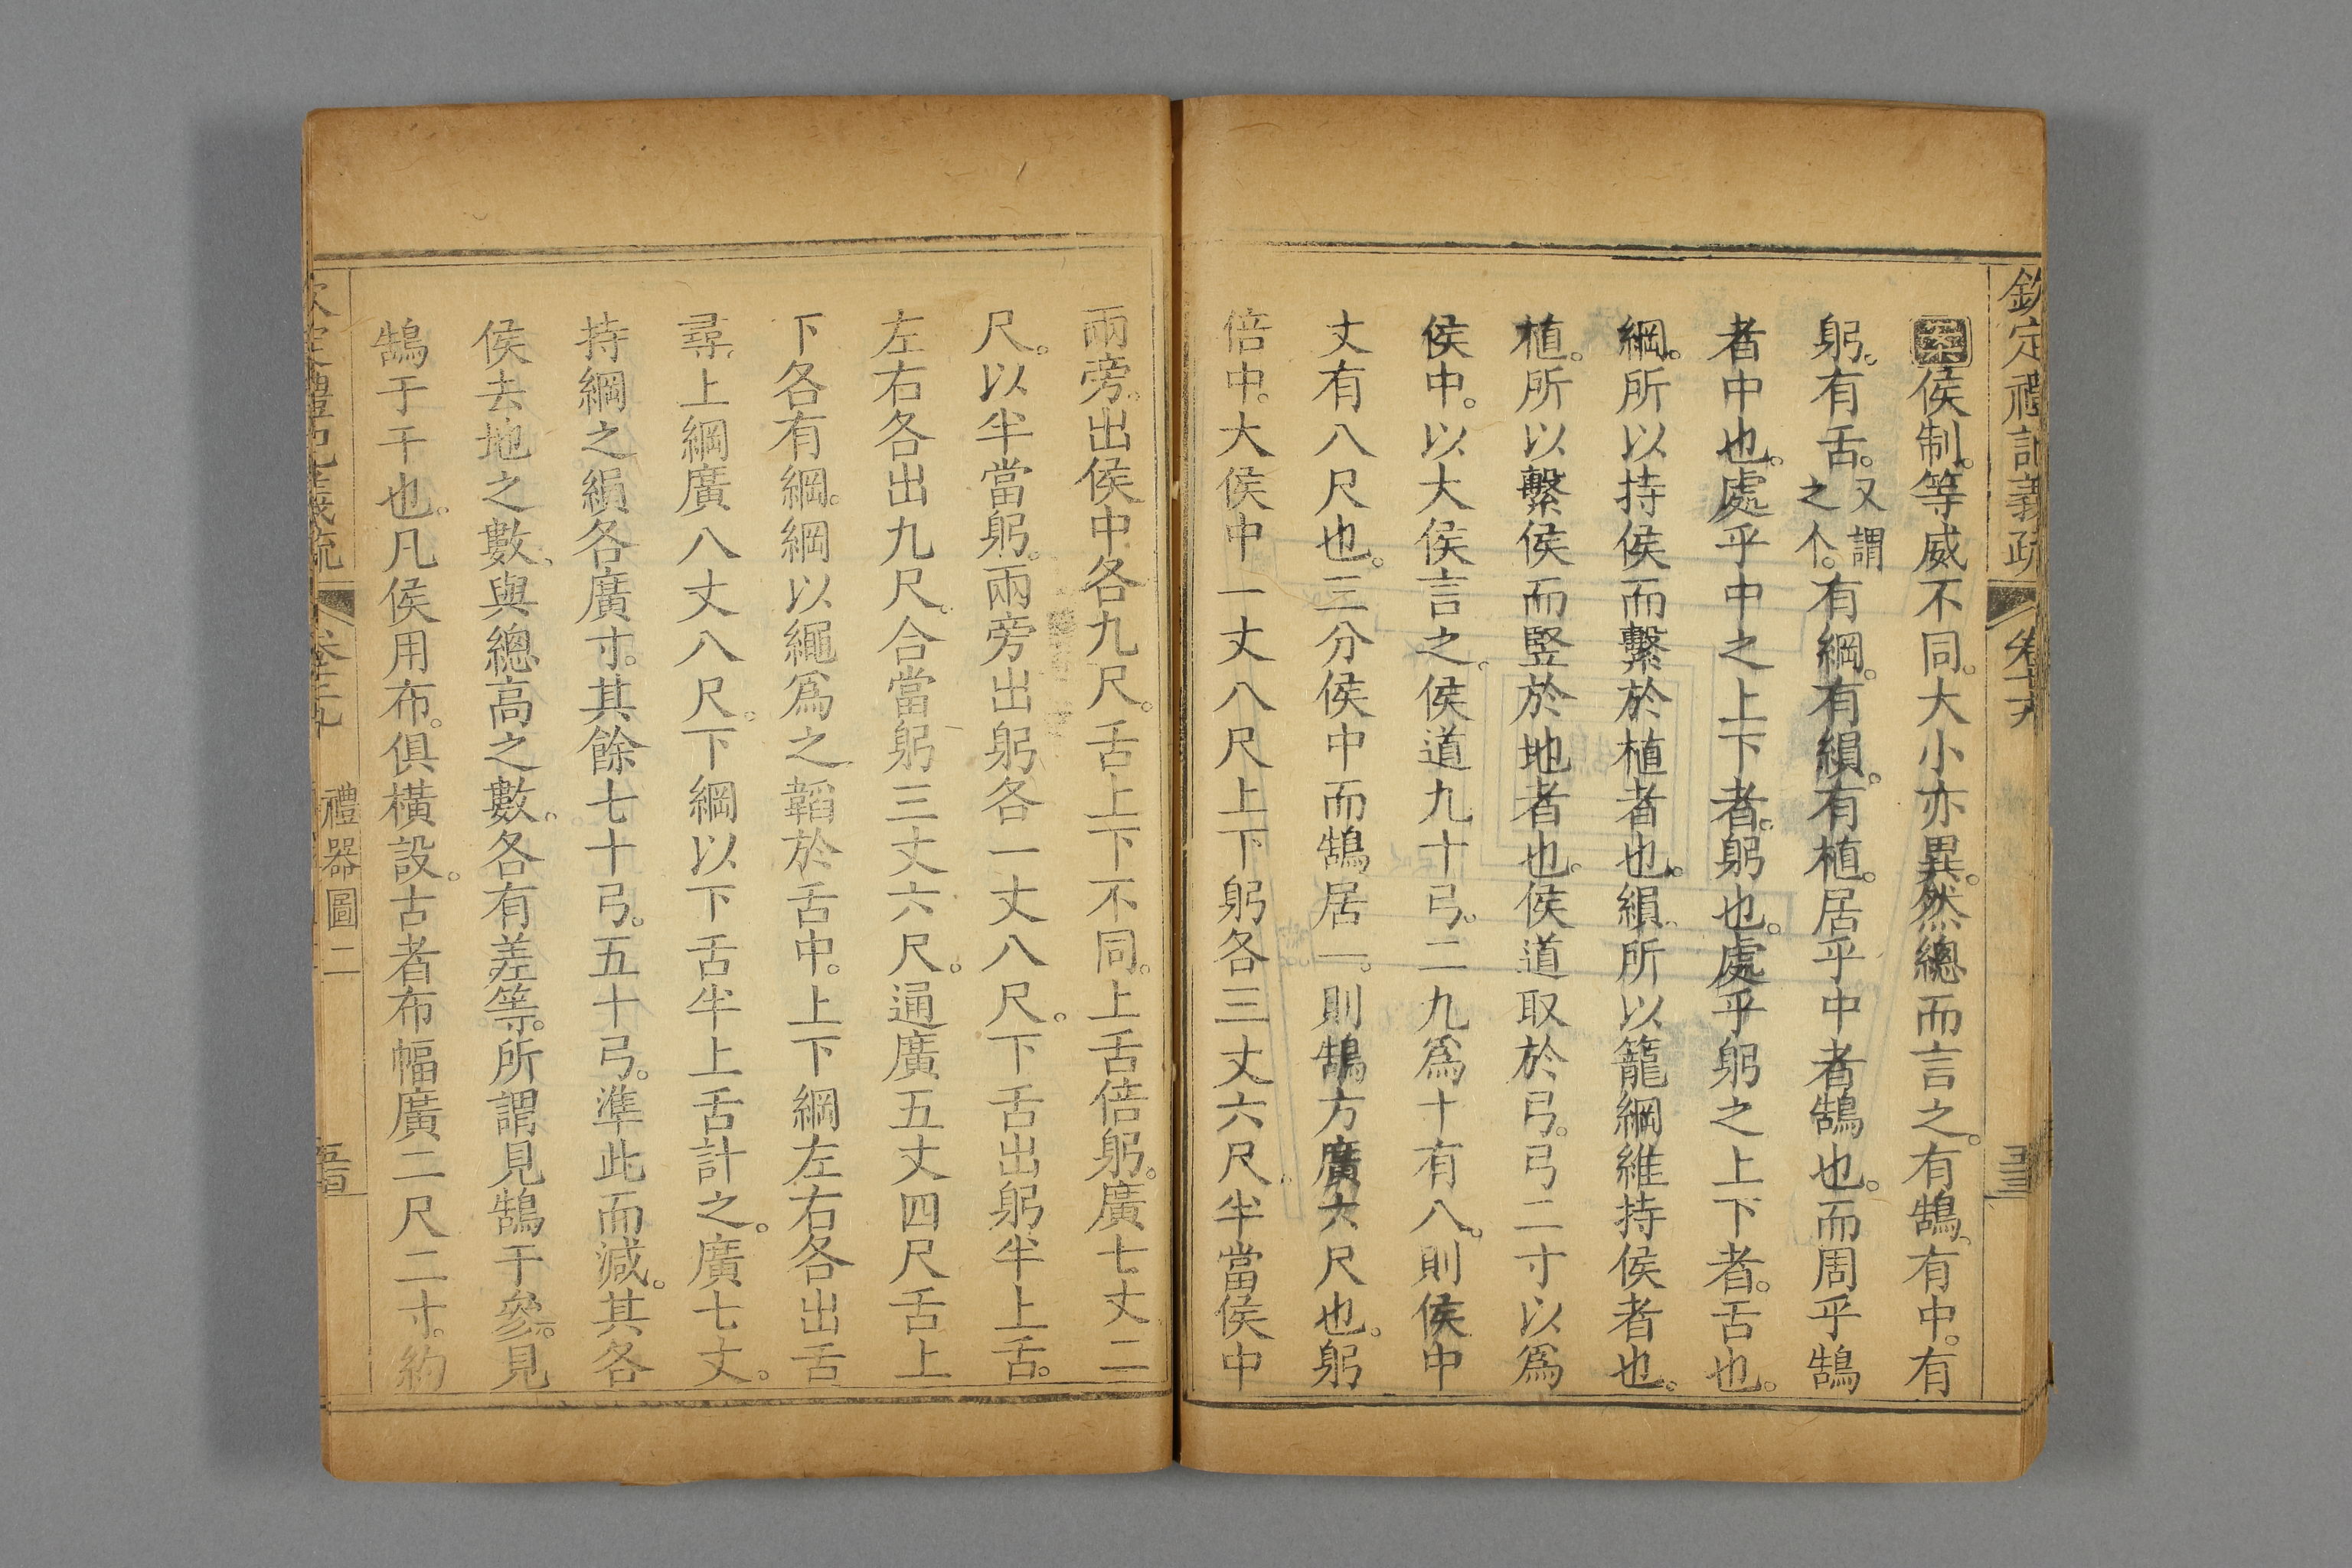 欽定禮記義疏 卷
案侯制。等威不同。大小亦異。然總而言之。有鵠。有中。有
躬。有舌。又謂之个。有綱。有縜。有植。居乎中者鵠也。而周乎鵠
者中也。處乎中之上下者。躬也。處乎躬之上下者。舌也。
綱。所以持侯而繫於植者也。縜所以籠綱維持侯者也。
植。所以繫侯而竪於地者也。侯道取於弓。弓二寸以爲
侯中。以大侯言之。侯道九十弓。二九爲十有八。則侯中
丈有八尺也。三分侯中而鵠居一。則鵠方廣六尺也。躬
倍中。大侯中一丈八尺上下躬各三丈六尺。半當侯中
兩旁。出侯中各九尺。舌上下不同。上舌倍躬。廣七丈二
尺。以半當躬。兩旁出躬各一丈八尺。下舌出躬半上舌。
左右各出九尺。合當躬三丈六尺。通廣五丈四尺舌上
下各有綱。綱以繩爲之韜於舌中。上下綱左右各出舌
尋上綱廣八丈八尺。下綱以下舌半上舌計之。廣七丈。
持綱之縜各廣寸。其餘七十弓。五十弓。準此而減。其各
侯去地之數。與總高之數。各有差等。所謂見鵠于參。見
鵠于干也。凡侯用布。俱橫設。古者布幅廣二尺二寸。約
欽定禮記義疏 禮器圖二